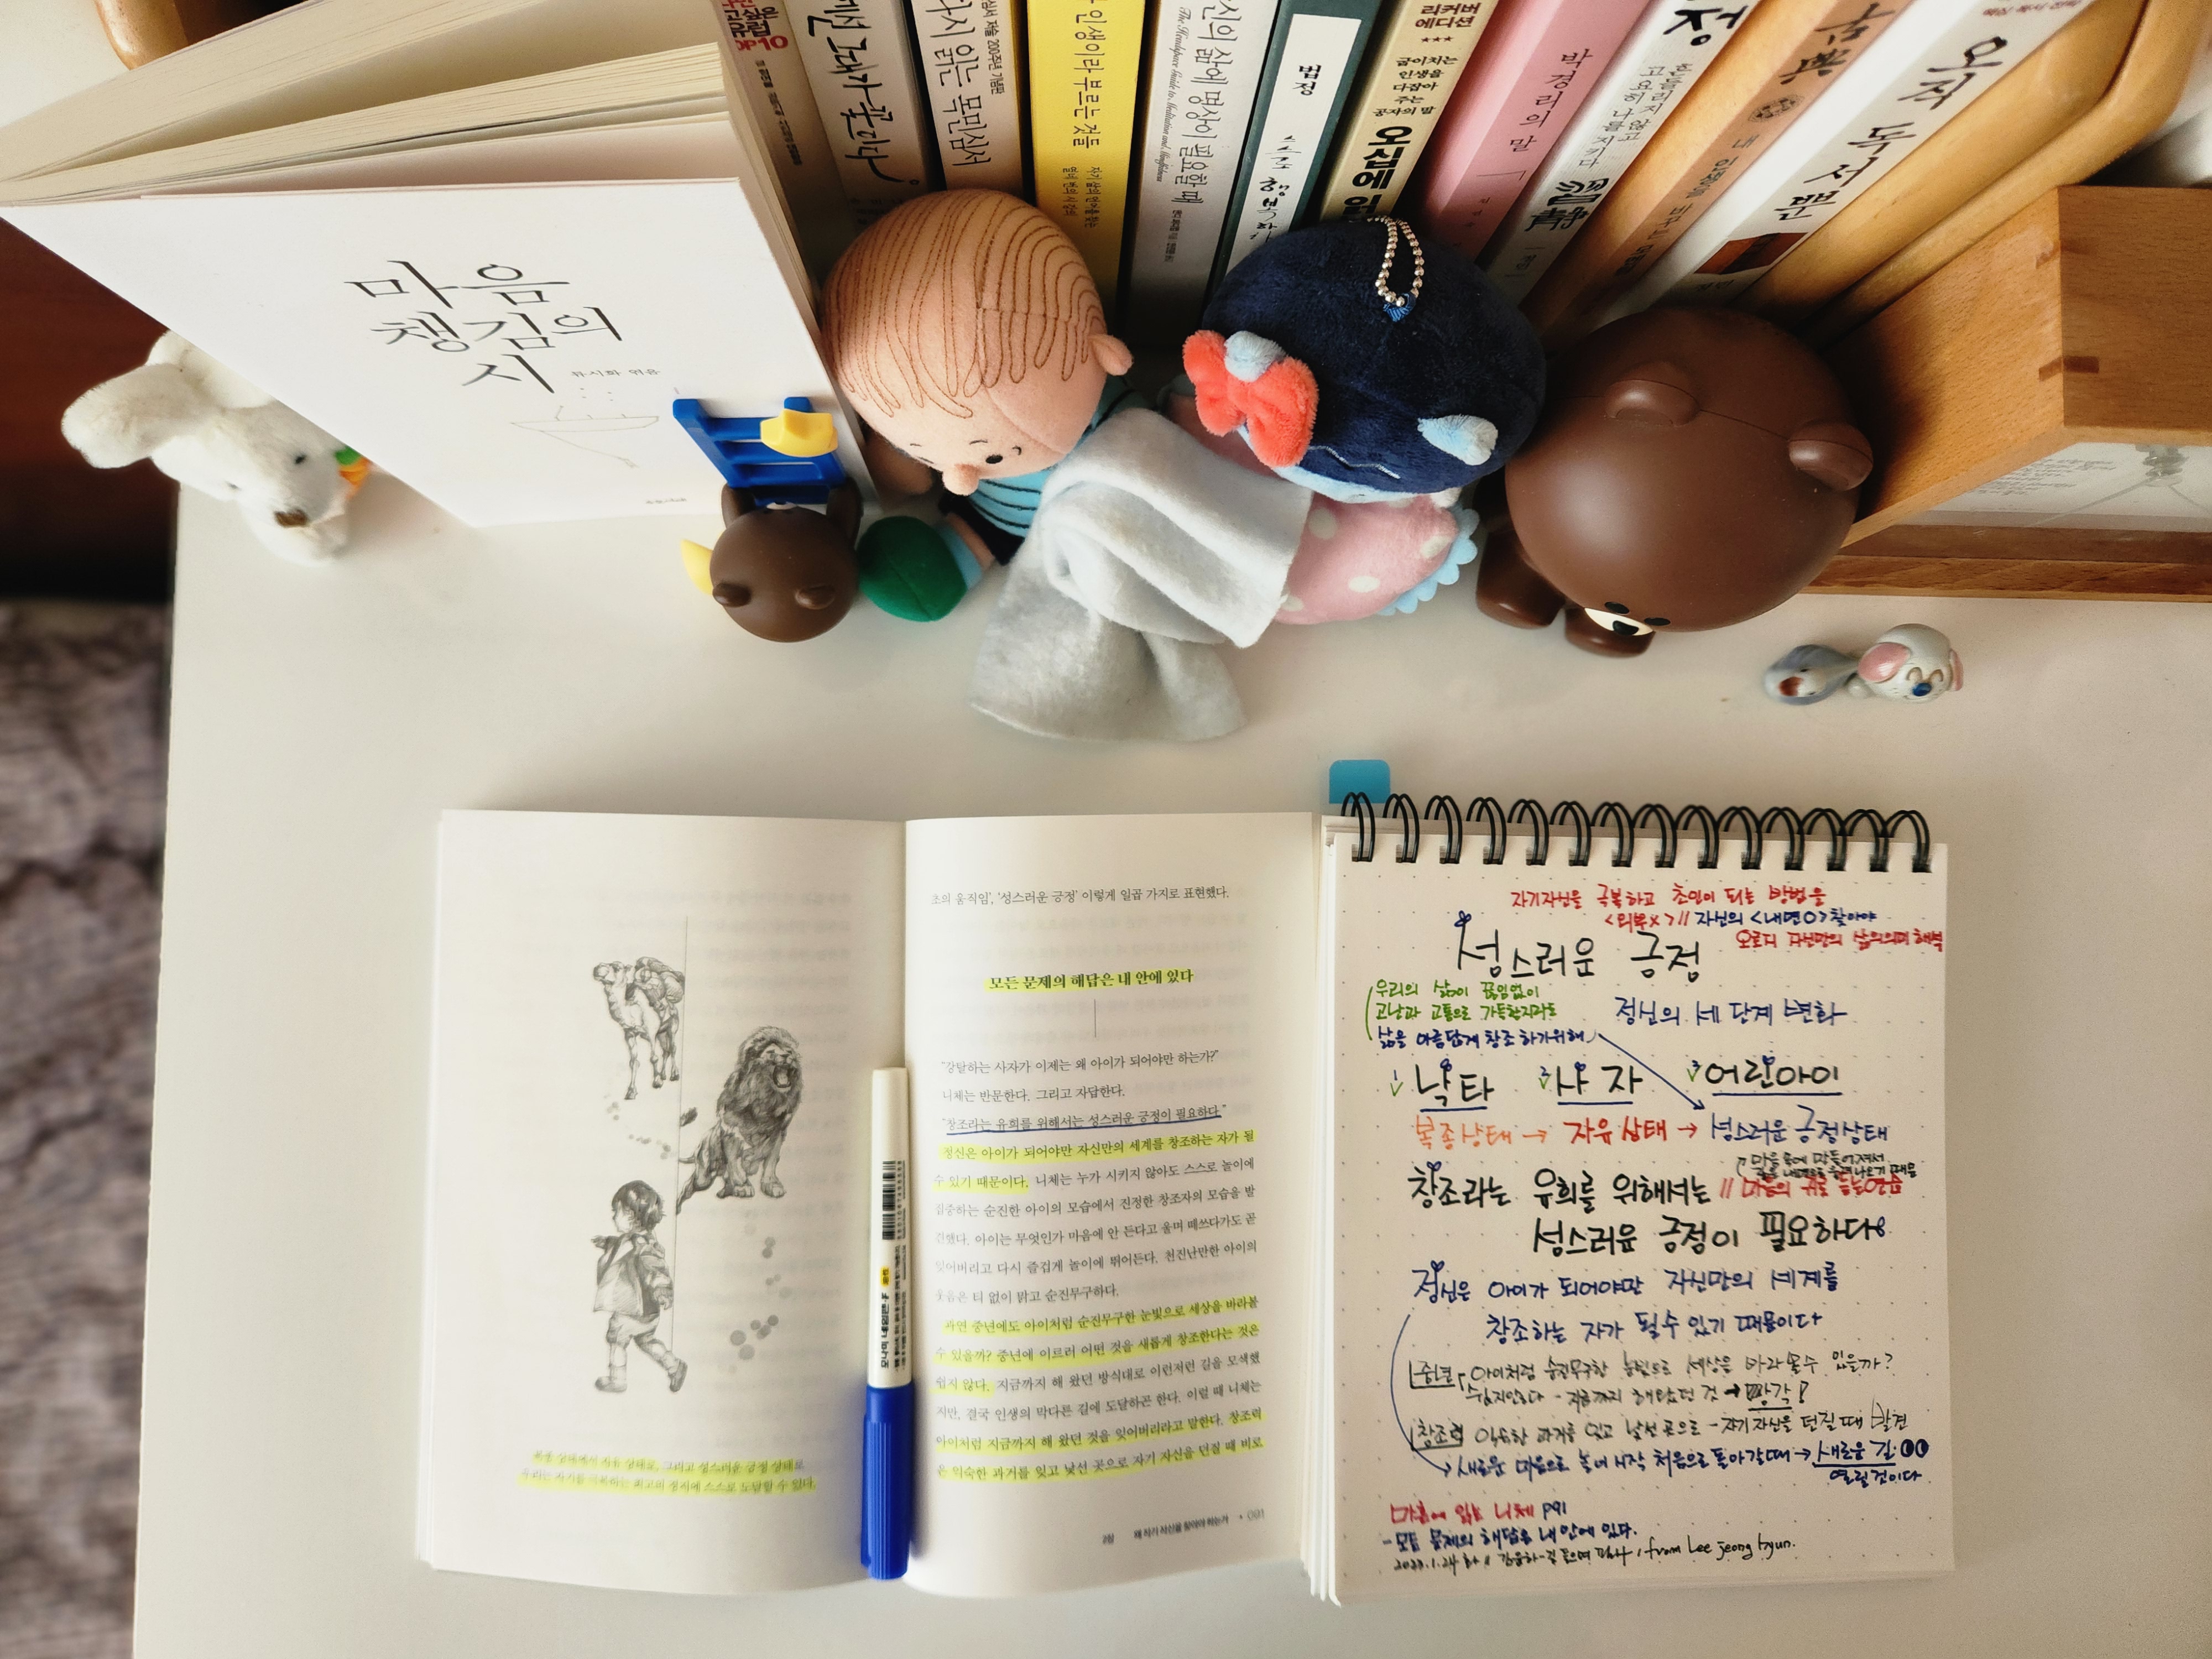 TOP10
꽃이라
다시 읽는 목민심서
인생이라 부르는 것들
당신의 삶에 명상이 필요할 때
The Headspace Guide to Meditation and Mindfulness
법정
스스로 행복하라
리커버
에디션
굽이치는
인생을
다잡아
주는
공자의 말
오십에 읽
박경리의 말
흔들리지 않고
고요히 나를 지키다
古典
내 인생을 바꾼
오직 독서뿐
마음
챙김의
시
류시화 엮음
초의 움직임', '성스러운 긍정' 이렇게 일곱 가지로 표현했다.
모든 문제의 해답은 내 안에 있다
"강탈하는 사자가 이제는 왜 아이가 되어야만 하는가?"
니체는 반문한다. 그리고 자답한다.
"창조라는 유희를 위해서는 성스러운 긍정이 필요하다."
정신은 아이가 되어야만 자신만의 세계를 창조하는 자가 될
수 있기 때문이다. 니체는 누가 시키지 않아도 스스로 놀이에
집중하는 순진한 아이의 모습에서 진정한 창조자의 모습을 발
견했다. 아이는 무엇인가 마음에 안 든다고 울며 떼쓰다가도 곧
잊어버리고 다시 즐겁게 놀이에 뛰어든다. 천진난만한 아이의
웃음은 티 없이 맑고 순진무구하다.
과연 중년에도 아이처럼 순진무구한 눈빛으로 세상을 바라볼
수 있을까? 중년에 이르러 어떤 것을 새롭게 창조한다는 것은
쉽지 않다. 지금까지 해 왔던 방식대로 이런저런 길을 모색했
지만, 결국 인생의 막다른 길에 도달하곤 한다. 이럴 때 니체는
아이처럼 지금까지 해 왔던 것을 잊어버리라고 말한다. 창조력
은 익숙한 과거를 잊고 낯선 곳으로 자기 자신을 던질 때 비로
2장 왜 자기 자신을 찾아야 하는가 • 091
복종 상태에서 자유 상태로, 그리고 성스러운 긍정 상태로
우리는 자기를 극복하는 최고의 경지에 스스로 도달할 수 있다.
모나미 네임펜
자기자신을 극복하고 초인이 되는 방법은
<외부X>// 자신의 <내면O>찾아야
오로지 자신만의 삶의의미 해석
성스러운 긍정
우리의 삶이 끊임없이
고난과 고통으로 가득할지라도
삶을 아름답게 창조 하기위해
정신의 세 단계 변화
1 낙타 2 사자 3 어린아이
복종상태 → 자유상태 → 성스러운 긍정상태
창조라는 유희를 위해서는 // 마음의
성스러운 긍정이 필요하다
정신은 아이가 되어야만 자신만의 세계를
창조하는 자가 될수 있기 때문이다
중년 아이처럼 순진무구한 눈빛으로 세상을 바라볼수 있을까?
쉽지않다 - 지금까지 해왔던 것 → 망각
창조력 익숙한 과거를 잊고 낯선 곳으로 - 자기자신을 던질때 발견
새로운 마음으로 놀이 시작 처음으로 돌아갈때 → 새로운 길
열릴것이다
마흔에 읽는 니체 P91
- 모든 문제의 해답은 내 안에 있다.
from Lee jeong hyun.